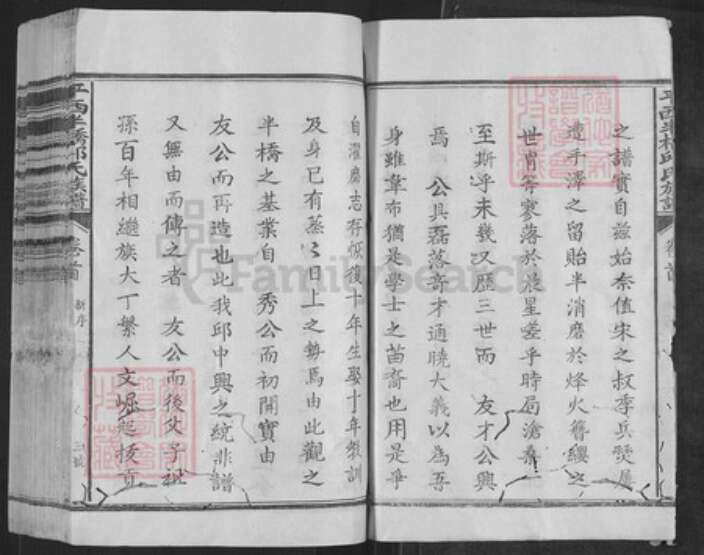 之譜實自茲始奈值宋之叔季兵燹屢
遭手澤之留貽半消磨於烽火簪纓之
世胄客寥落於晨星嗟乎時局滄桑一
至斯乎未幾又歷三世而　友才公興
焉　公具磊落奇才通曉大義以為吾
身雖韋布猶是學士之苗裔也用是爭
自濯磨志存恢復十年生聚十年教訓
及身已有蒸〻日上之勢焉由此觀之
半橋之基業自　秀公而初開實由
友公而再造也此我邱中興之統非譜
又無由而傳之者　友公而後父子祖
孫百年相繼族大丁繁人文崛起
平西半橋邱氏族譜
卷首
新序
三
FamilySearch